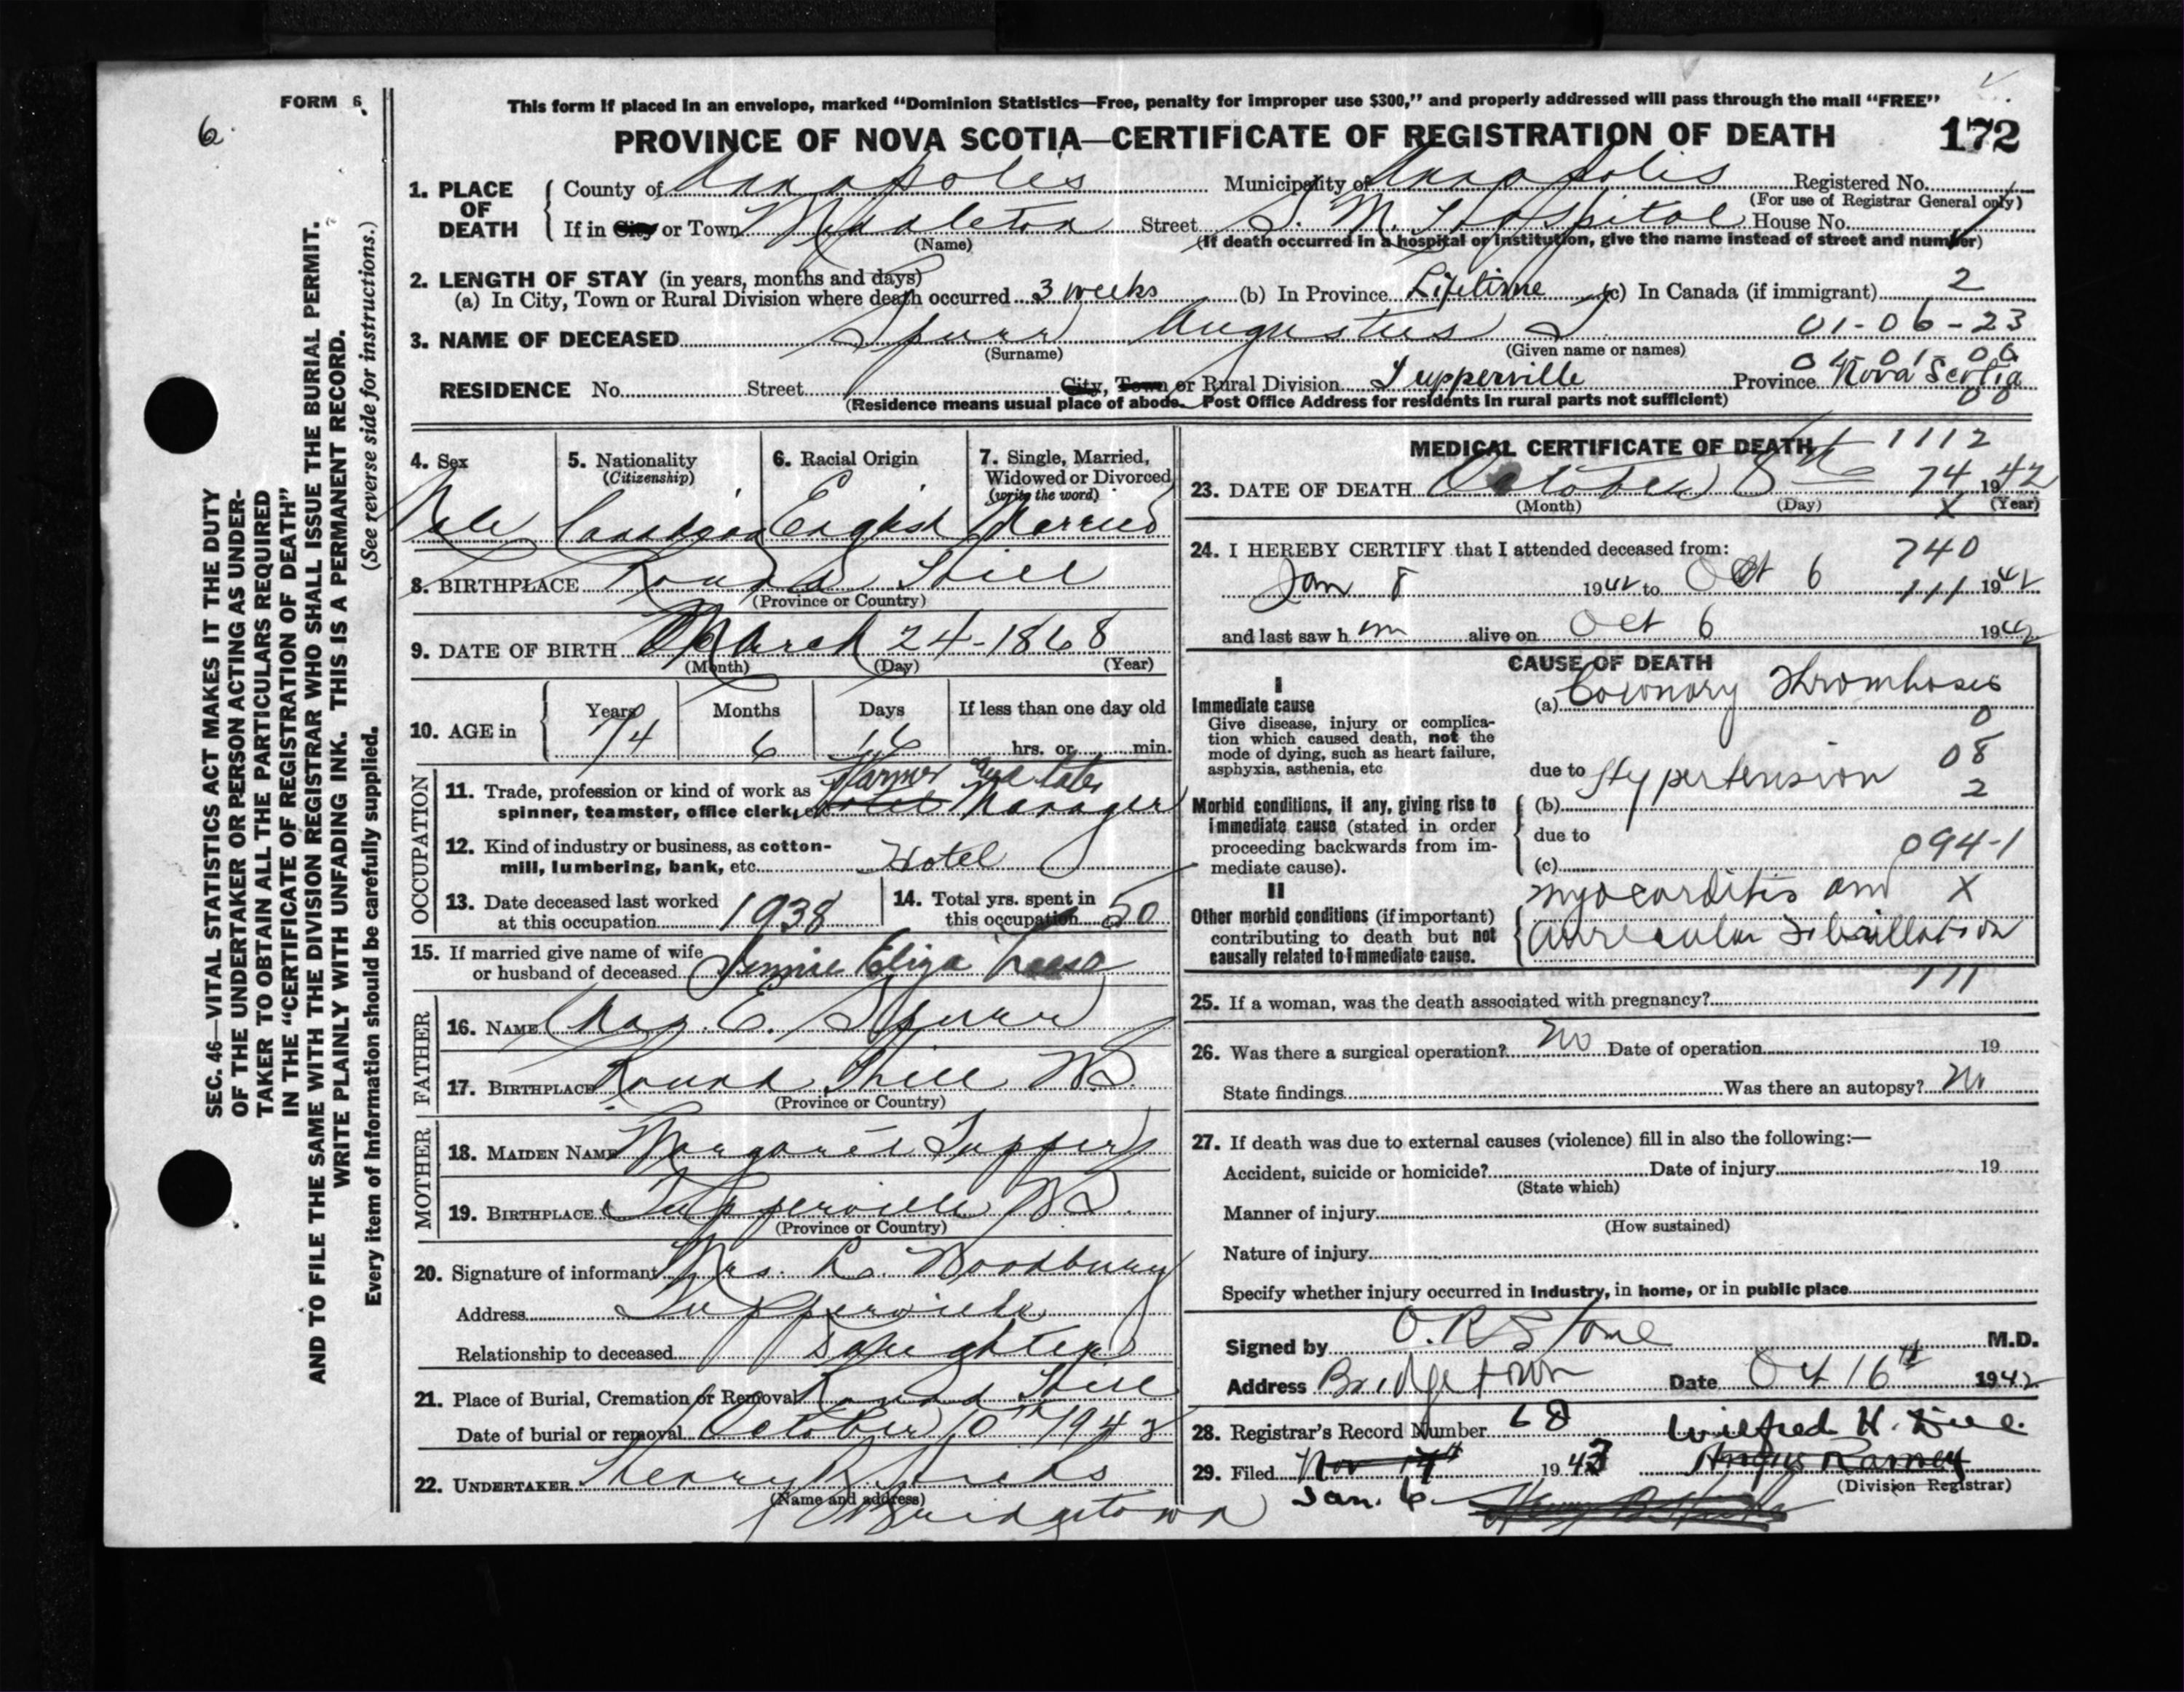 FORM 6.
6.
This form if placed in an envelope, marked “Dominion Statistics—Free, penalty for improper use $300,” and properly addressed will pass through the mail “FREE”
PROVINCE OF NOVA SCOTIA—CERTIFICATE OF REGISTRATION OF DEATH 172
1. PLACE OF DEATH
County of Annapolis Municipality of Annapolis Registered No.
(For use of Registrar General only)
If in City or Town Middleton Street S. M. Hospital House No.
(Name) (If death occurred in a hospital or institution, give the name instead of street and number)
2. LENGTH OF STAY (in years, months and days)
(a) In City, Town or Rural Division where death occurred 3 weeks (b) In Province Lifetime (c) In Canada (if immigrant) 2
3. NAME OF DECEASED Spurr Augustus T. 01-06-23
(Surname) (Given name or names)
04-01-06
RESIDENCE No. Street City, Town or Rural Division Tupperville Province Nova Scotia
(Residence means usual place of abode. Post Office Address for residents in rural parts not sufficient) 00
SEC. 46—VITAL STATISTICS ACT MAKES IT THE DUTY
OF THE UNDERTAKER OR PERSON ACTING AS UNDER-
TAKER TO OBTAIN ALL THE PARTICULARS REQUIRED
IN THE “CERTIFICATE OF REGISTRATION OF DEATH”
AND TO FILE THE SAME WITH THE DIVISION REGISTRAR WHO SHALL ISSUE THE BURIAL PERMIT.
WRITE PLAINLY WITH UNFADING INK. THIS IS A PERMANENT RECORD.
Every item of information should be carefully supplied. (See reverse side for instructions.)
4. Sex 5. Nationality 6. Racial Origin 7. Single, Married,
(Citizenship) Widowed or Divorced
(write the word)
Male Canadian English Married
8. BIRTHPLACE Round Hill
(Province or Country)
9. DATE OF BIRTH March 24-1868
(Month) (Day) (Year)
10. AGE in Years Months Days If less than one day old
74 6 16 hrs. or min.
OCCUPATION
11. Trade, profession or kind of work as Farmer and later
spinner, teamster, office clerk, etc. Hotel Manager
12. Kind of industry or business, as cotton-
mill, lumbering, bank, etc. Hotel
13. Date deceased last worked
at this occupation 1938
14. Total yrs. spent in
this occupation 50
15. If married give name of wife
or husband of deceased Jennie Eliza
FATHER
16. NAME Chas. E. Spurr
17. BIRTHPLACE Round Hill N.S.
(Province or Country)
MOTHER
18. MAIDEN NAME Margaret Tupper
19. BIRTHPLACE Tupperville N.S.
(Province or Country)
20. Signature of informant Mrs. L. Woodbury
Address Tupperville
Relationship to deceased Daughter
21. Place of Burial, Cremation or Removal Round Hill
Date of burial or removal October 10th 1942
22. UNDERTAKER Henry B. Hicks
(Name and address)
Bridgetown
MEDICAL CERTIFICATE OF DEATH 1112
23. DATE OF DEATH October 8th 74 1942
(Month) (Day) X (Year)
24. I HEREBY CERTIFY that I attended deceased from: 740
Jan 8 1942 to Oct 6 111 1942
and last saw h im alive on Oct 6 1942
CAUSE OF DEATH
I
Immediate cause (a) Coronary Thrombosis
Give disease, injury or complica-
tion which caused death, not the
mode of dying, such as heart failure,
asphyxia, asthenia, etc
0
due to Hypertension 08
Morbid conditions, if any, giving rise to
immediate cause (stated in order
proceeding backwards from im-
mediate cause).
(b) 2
due to
(c) 094-1
II
Other morbid conditions (if important)
contributing to death but not
causally related to immediate cause.
Myocarditis and X
Auricular Fibrillation
111
25. If a woman, was the death associated with pregnancy?
26. Was there a surgical operation? No Date of operation 19
State findings Was there an autopsy? No
27. If death was due to external causes (violence) fill in also the following:—
Accident, suicide or homicide? Date of injury 19
(State which)
Manner of injury
(How sustained)
Nature of injury
Specify whether injury occurred in industry, in home, or in public place
Signed by O. R. Stone M.D.
Address Bridgetown Date Oct 16th 1942
28. Registrar's Record Number 68 Wilfred H.
29. Filed Nov 14th 1943 Angus Ramey
(Division Registrar)
Jan. 6 Henry B. Hicks